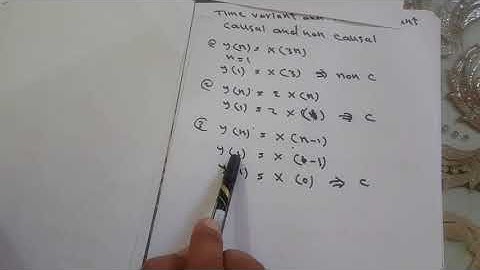 Time variant
causal and non causal
① y(n) = x(3n)
n = 1
y(1) = x(3) ⇒ non c
② y(n) = 2 x(n)
y(1) = 2 x(1) ⇒ c
③ y(n) = x(n-1)
y(1) = x(1-1)
= x(0) ⇒ c